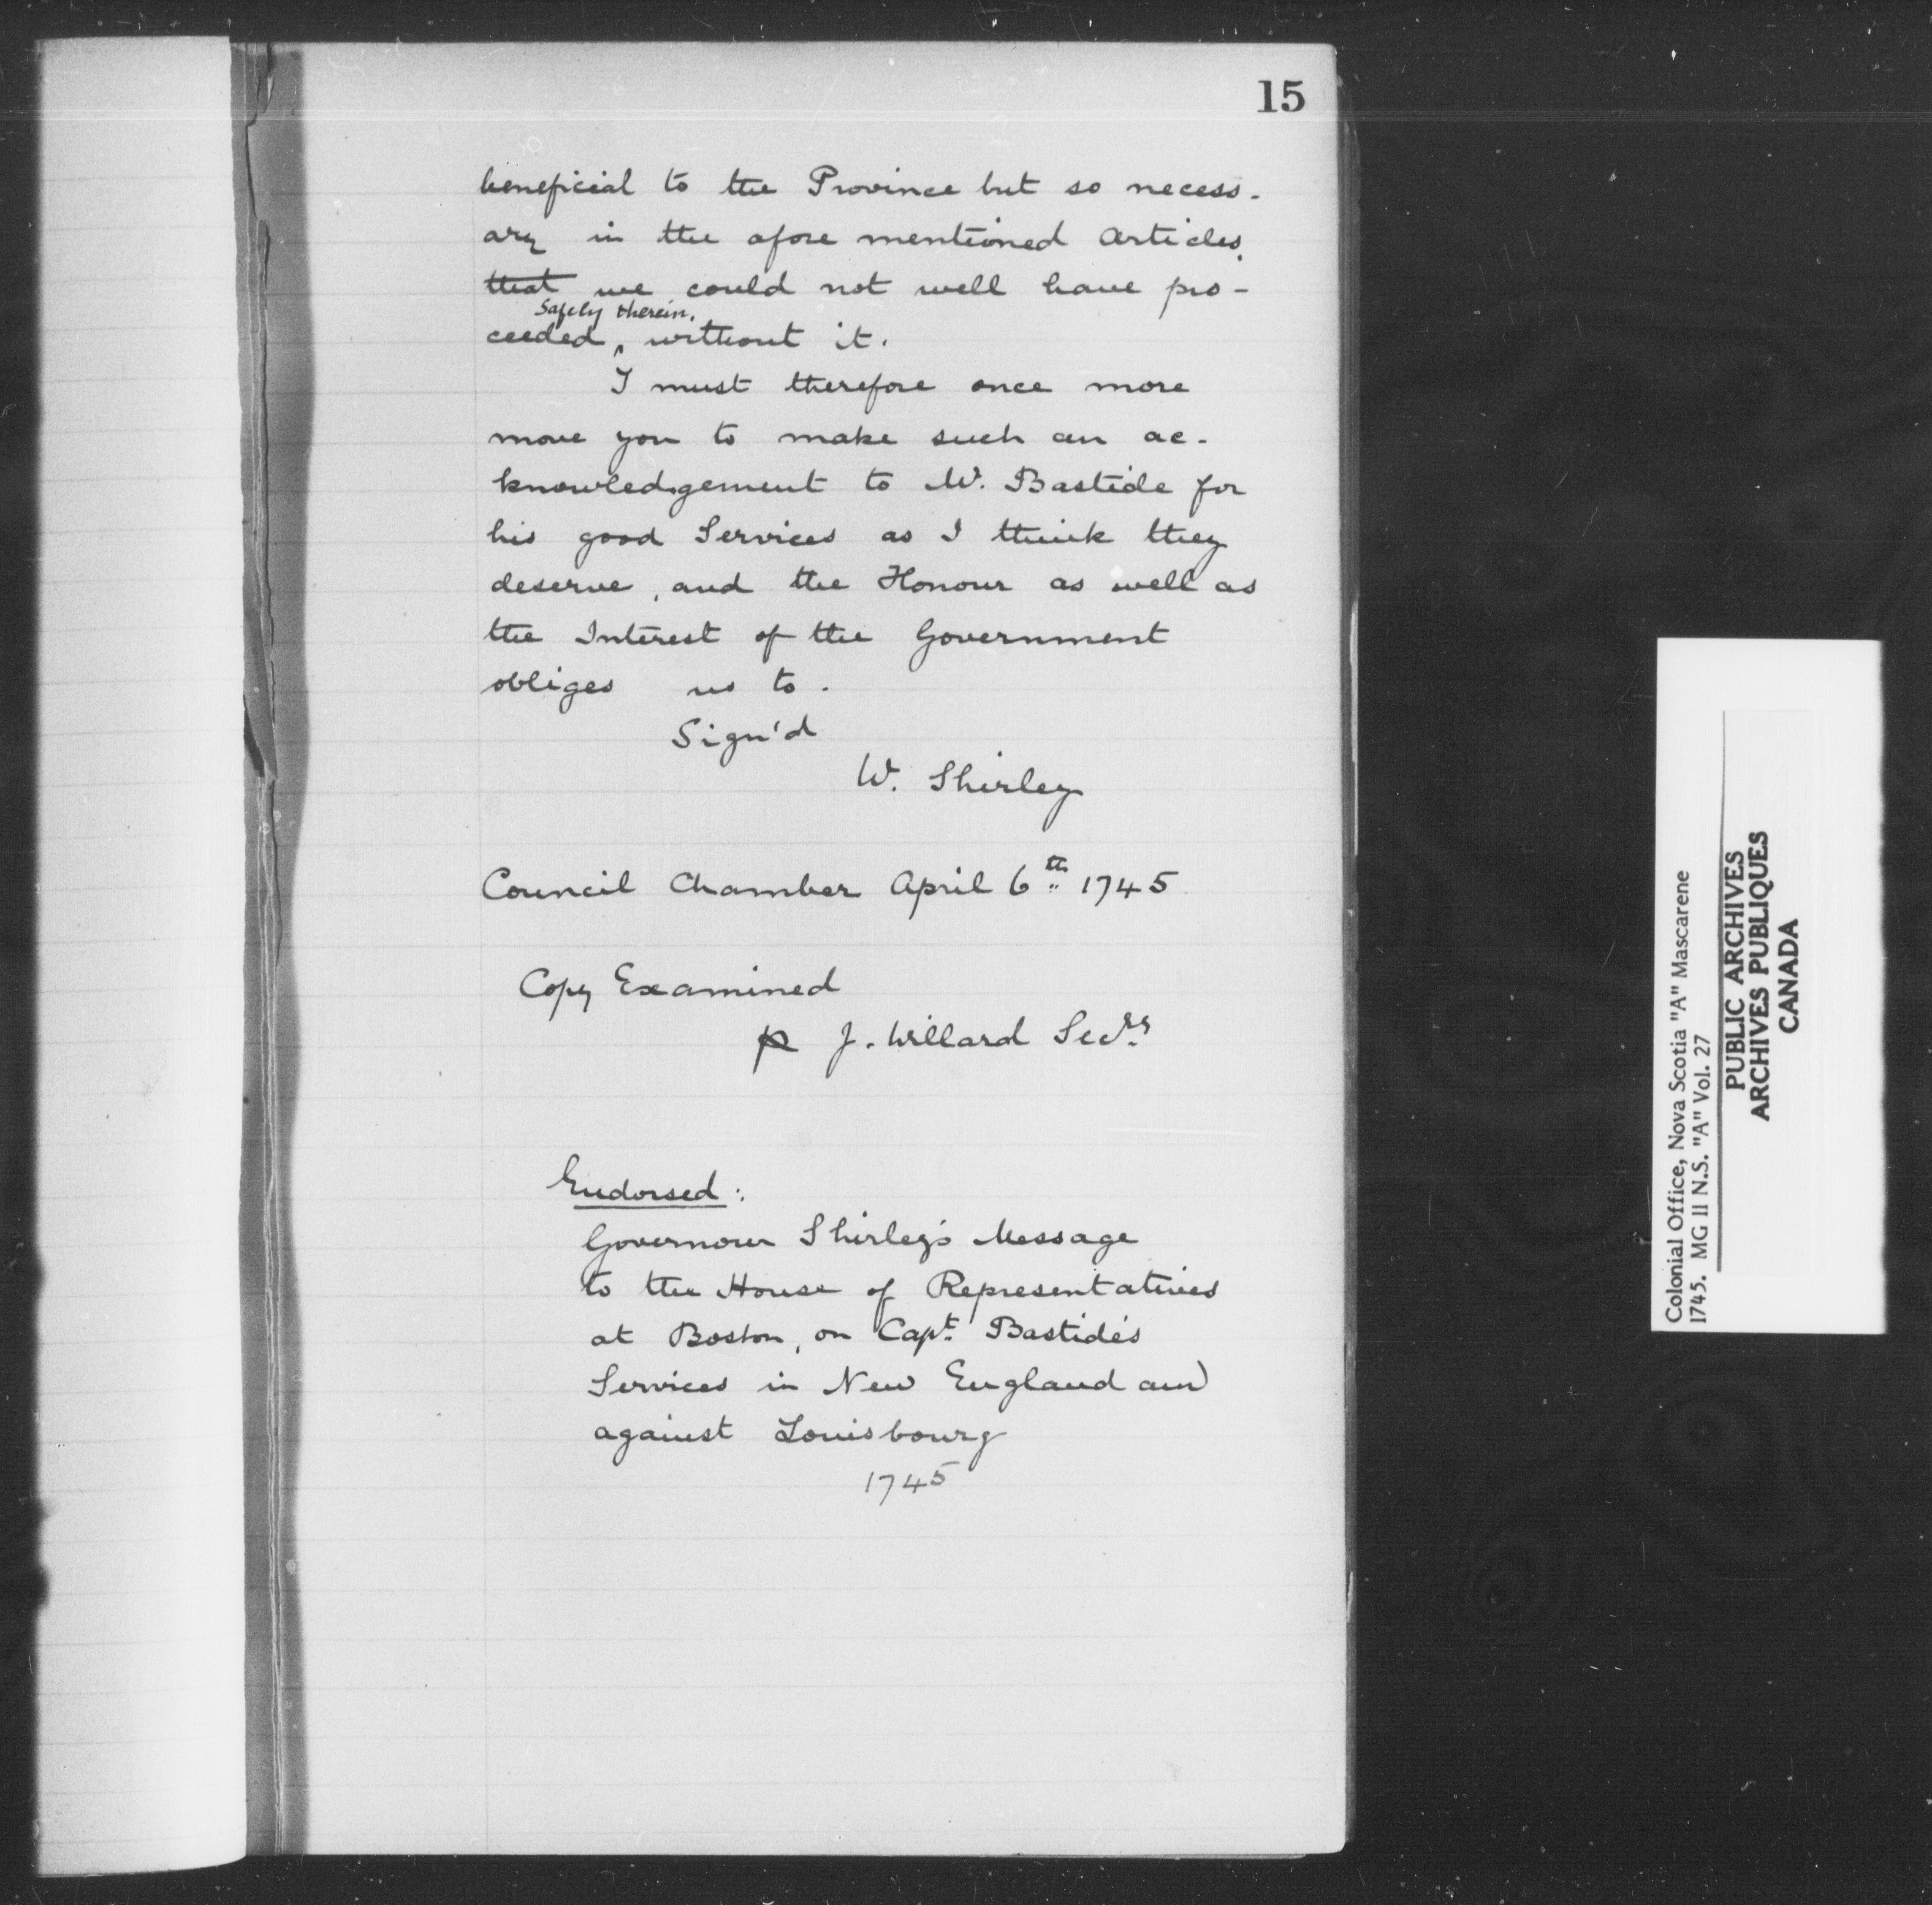 15
beneficial to the Province but so necess-
ary in the afore mentioned Articles.
that we could not well have pro-
Safely therein.
ceeded ‸ without it.
I must therefore once more
move you to make such an ac-
knowledgement to W. Bastide for
his good Services as I think they
deserve, and the Honour as well as
the Interest of the Government
obliges us to.
Sign'd
W. Shirley
Council Chamber April 6th 1745
Copy Examined
p J. Willard Secry
Endorsed:
Governour Shirley's Message
to the House of Representatives
at Boston, on Capt. Bastide's
Services in New England and
against Louisbourg
1745
Colonial Office, Nova Scotia "A" Mascarene
1745. MG 11 N.S. "A" Vol. 27
PUBLIC ARCHIVES
ARCHIVES PUBLIQUES
CANADA